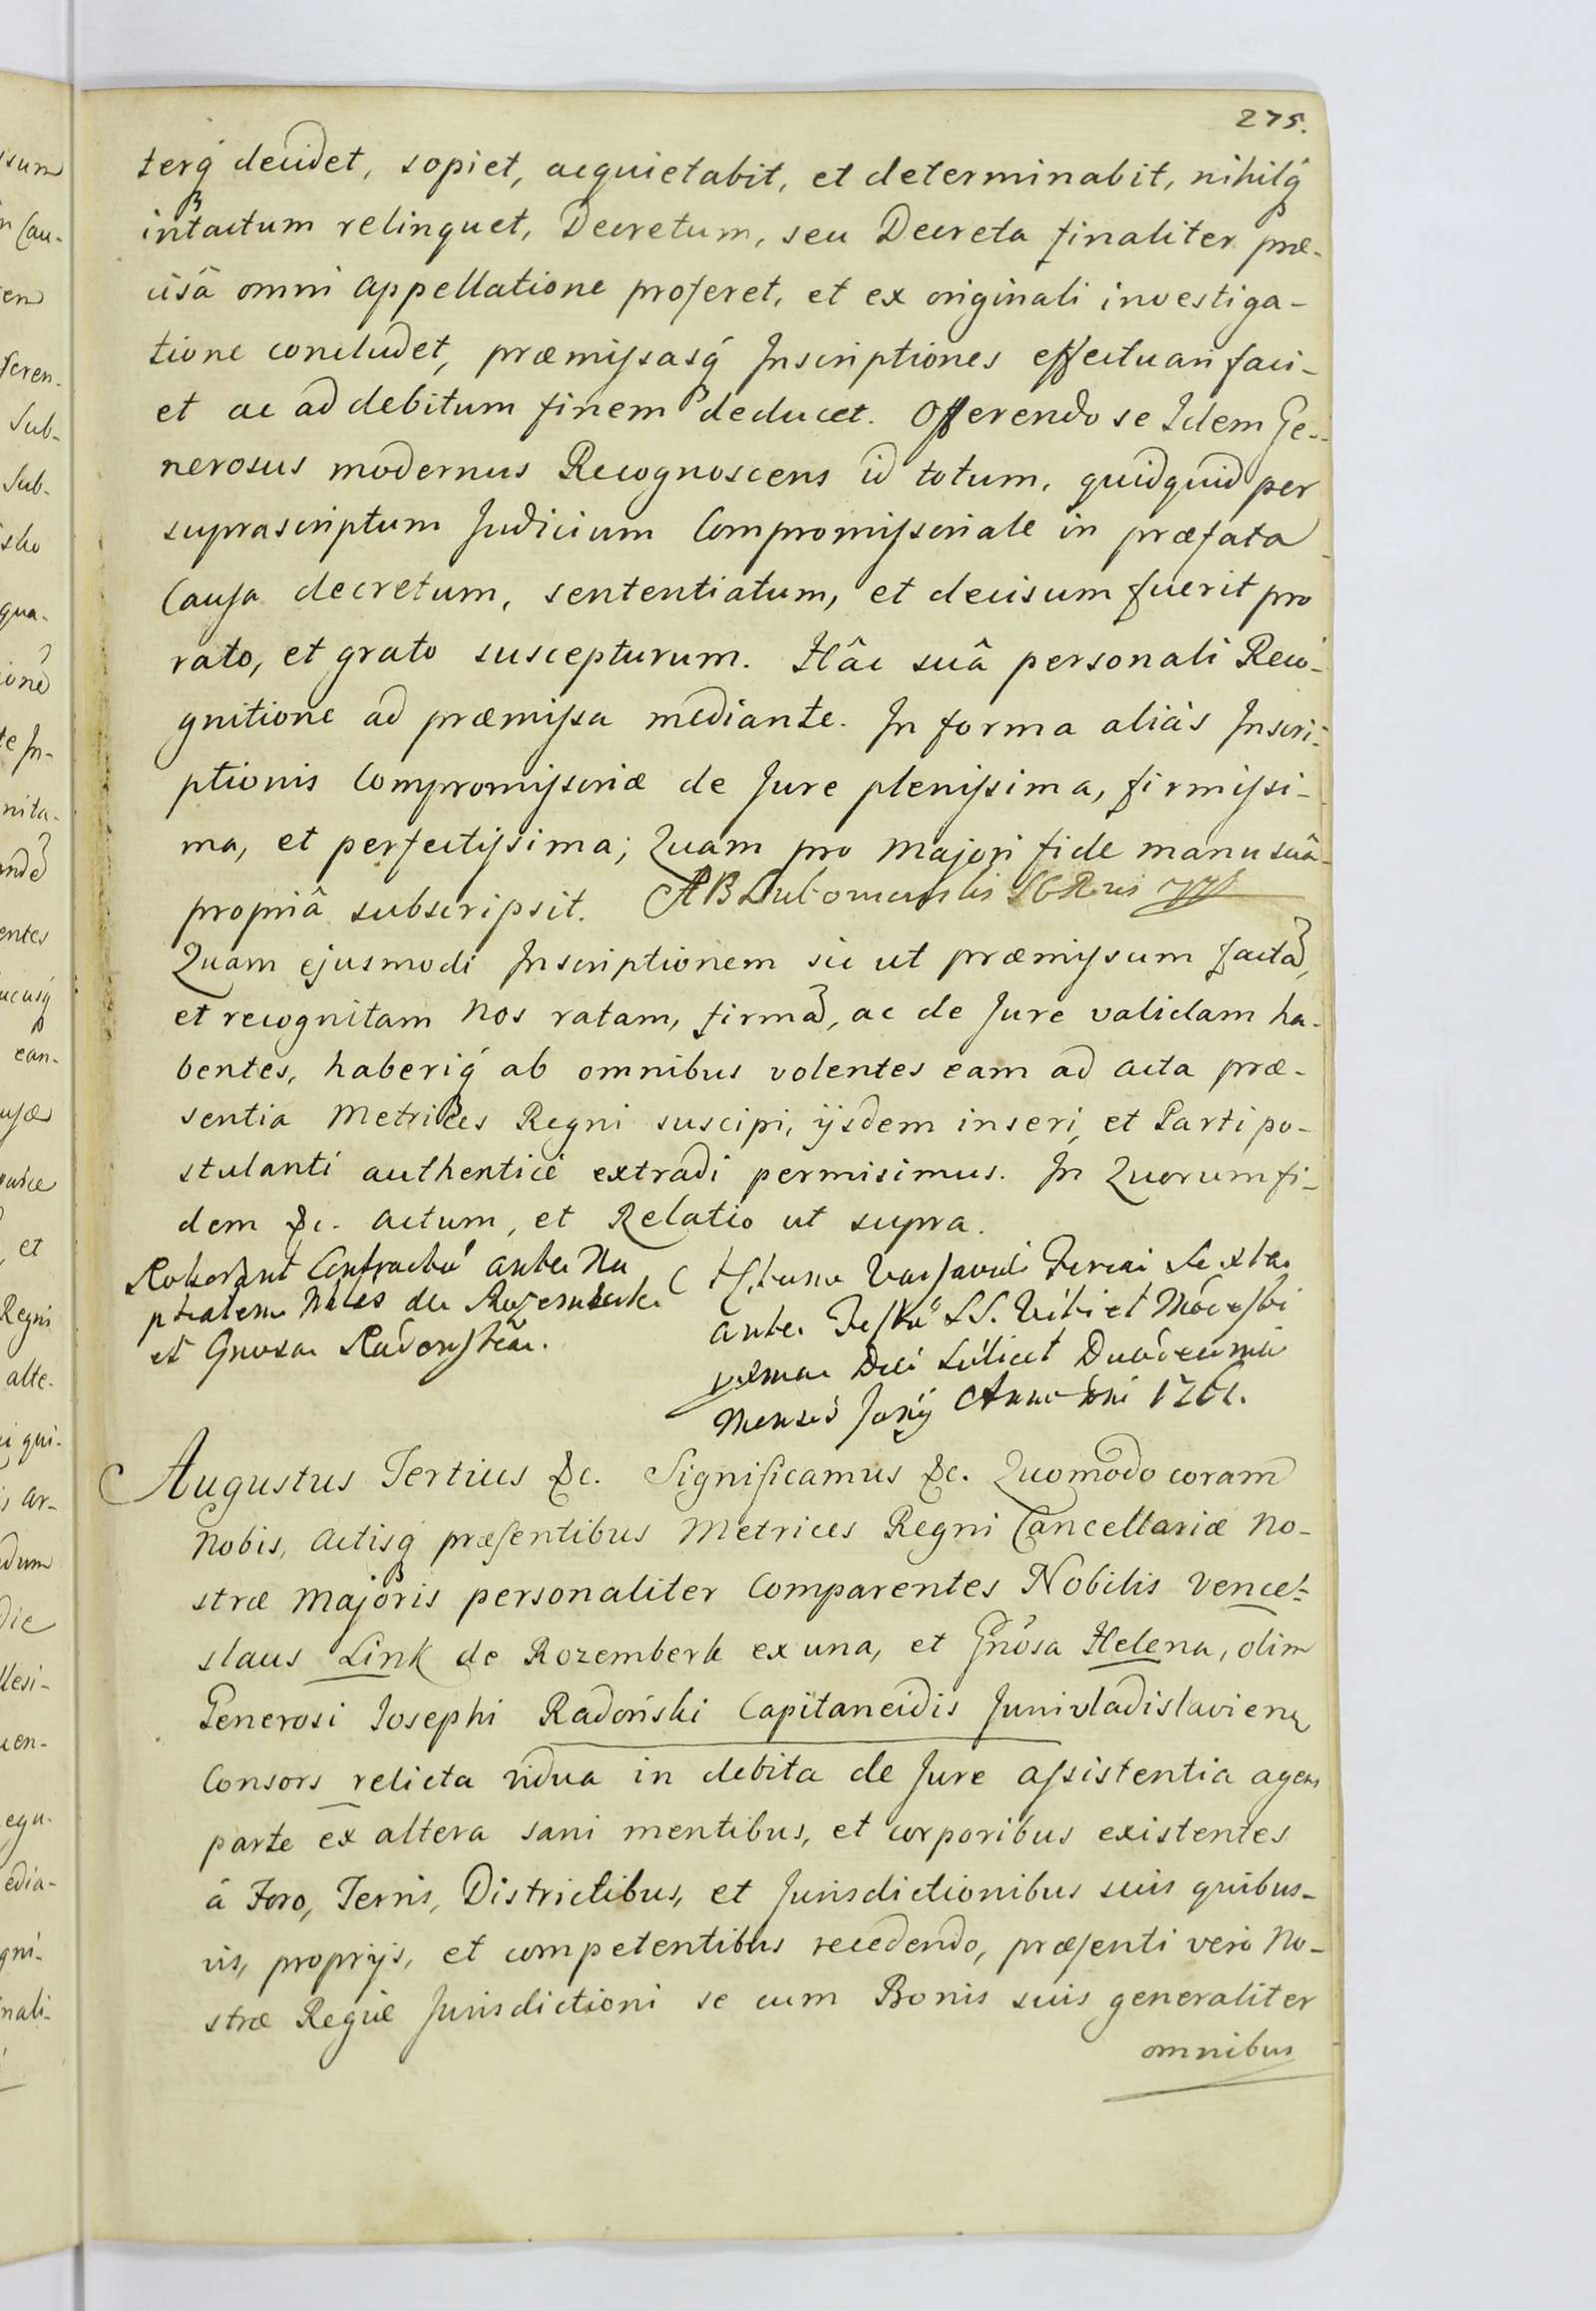 275.
terq́ decidet, sopiet, acquietabit, et determinabit, nihilq́
intactum relinquet, Decretum, seu Decreta finaliter præ-
cisâ omni appellatione proferet, et ex originali investiga-
tione concludet, præmissasq́ Inscriptiones effectuari faci-
et ac ad debitum finem deducet. Offerendo se Idem Ge-
nerosus modernus Recognoscens id totum, quidquid per
suprascriptum Judicium Compromissoriale in præfata
Causa decretum, sententiatum, et decisum fuerit pro
rato, et grato suscepturum. Hâc suâ personali Reco-
gnitione ad præmissa mediante. In forma aliàs Inscri-
ptionis Compromissoriæ de Jure plenissima, firmissi-
ma, et perfectissima; Quam pro majori fide manu suâ
propriâ subscripsit.
Quam ejusmodi Inscriptionem sic ut præmissum factã,
et recognitam Nos ratam, firmã, ac de Jure validam ha-
bentes, haberiq́ ab omnibus volentes eam ad acta præ-
sentia Metrices Regni suscipi, ijsdem inseri, et Parti po-
stulanti authenticè extradi permisimus. In Quorum fi-
dem &c. Actum, et Relatio ut supra.
Roborant Contractũ ante Nu
ptialem Nbles de Rozemberk
et Gnosa Radonska.
Actum Varsaviæ Feria Sexta
ante Festũ SS. Viti et Modesti
Die scilicet Duodecima
Mensis Junij Anno Dni 1761.
Augustus Tertius &c. Significamus &c. Quomodo coram
Nobis, Actisq́ præsentibus Metrices Regni Cancellariæ No-
stræ Majoris personaliter Comparentes Nobilis Vence-
slaus Link de Rozemberk ex una, et Gnosa Helena, olim
Generosi Josephi Radoński Capitaneidis Junivladislavien
Consors relicta vidua in debita de Jure assistentia agens
parte ex altera sani mentibus, et corporibus existentes
â Foro, Terris, Districtibus, et Jurisdictionibus suis quibus-
vis, proprijs, et competentibus recedendo, præsenti verò No-
stræ Regiæ Jurisdictioni se cum Bonis suis generaliter
omnibus